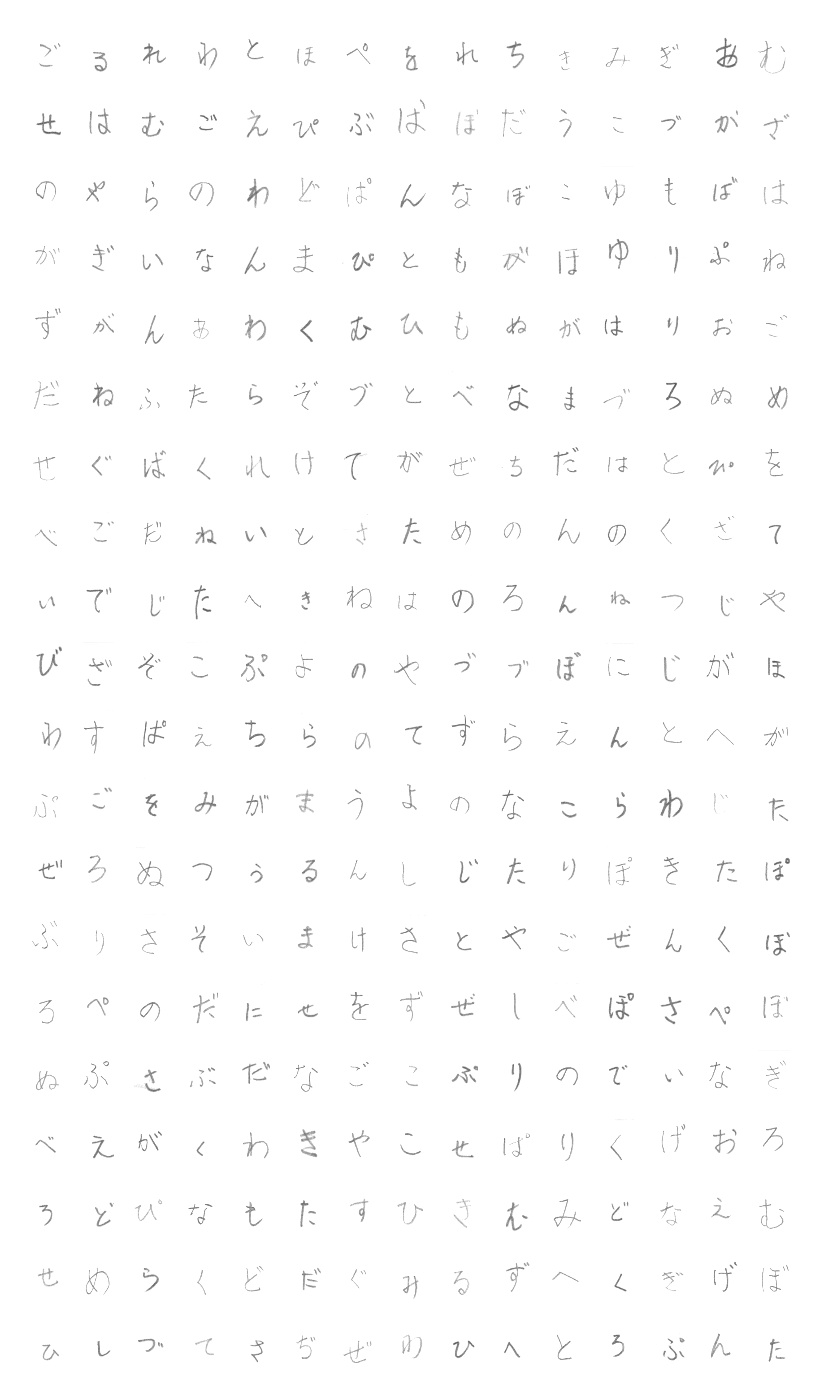 ごるれわとほぺをれちきみぎあむ
せはむごえぴぶばぼだうこづがざ
のやらのわどぱんなぼこゆもばは
がぎいなんまぴともがほゆりぷね
ずがんあわくむひもぬがはりおご
だねふたらぞづとべなまづろぬめ
せぐばくれけてがぜちだはとぴを
べごだねいとさためのんのくざて
いでじたへきねはのろんねつじや
びざぞこぷよのやづづぼにじがほ
わすぱえちらのてずらえんとへが
ぷごをみがまうよのなこらわじた
ぜろぬつぅるんしじたりぽきたぽ
ぶりさそいまけさとやごぜんくぼ
ろぺのだにせをずぜしべぽさぺぼ
ぬぷさぶだなごこぷりのでいなぎ
べえがくわきやこせぱりくげおろ
ろどぴなもたすひきむみどなえむ
せめらくどだぐみるずへくぎげぼ
ひしづてさぢぜわひへとろぷんた